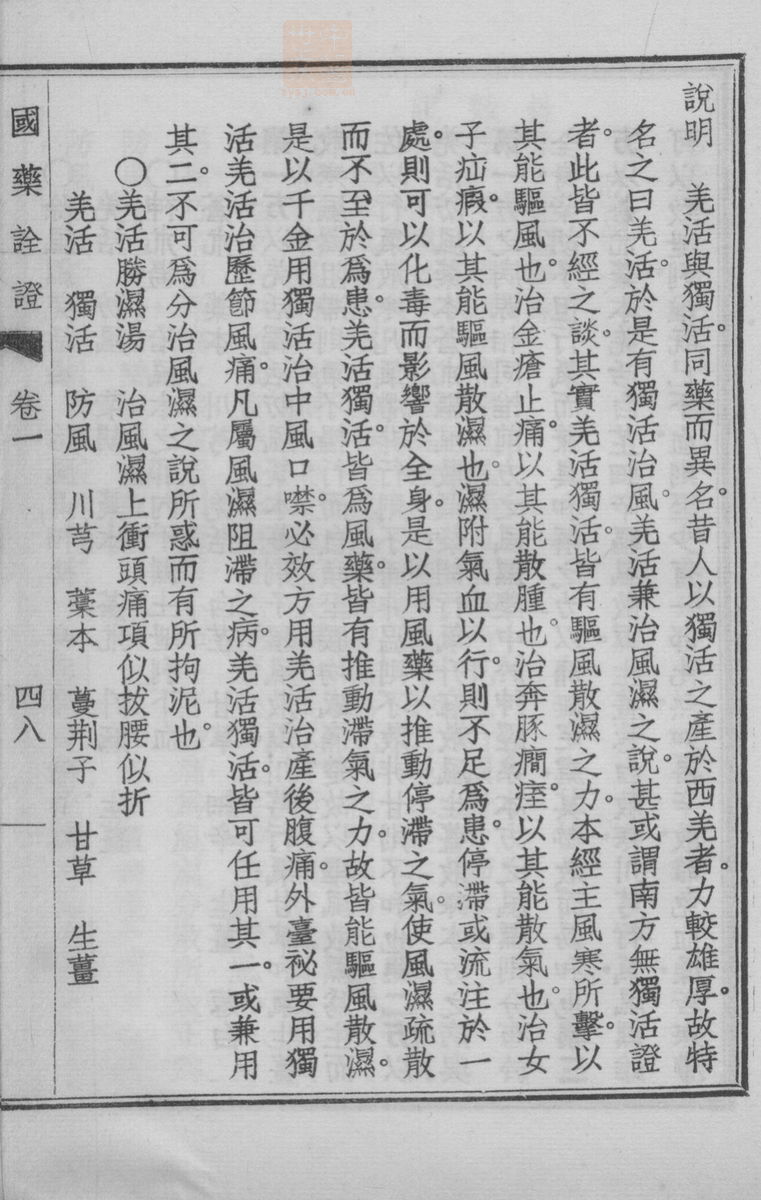 說明　羌活與獨活。同藥而異名。昔人以獨活之產於西羌者。力較雄厚。故特
名之曰羌活。於是有獨活治風。羌活兼治風濕之說。甚或謂南方無獨活證
者。此皆不經之談。其實羌活獨活。皆有驅風散濕之力。本經主風寒所擊。以
其能驅風也。治金瘡止痛。以其能散腫也。治奔豚癇痓。以其能散氣也。治女
子疝瘕。以其能驅風散濕也。濕附氣血以行。則不足爲患。停滯或流注於一
處。則可以化毒而影響於全身。是以用風藥以推動停滯之氣。使風濕疏散
而不至於爲患。羌活獨活。皆爲風藥。皆有推動滯氣之力。故皆能驅風散濕。
是以千金用獨活治中風口噤。必效方用羌活治產後腹痛。外臺祕要用獨
活羌活治歷節風痛。凡屬風濕阻滯之病。羌活獨活。皆可任用其一。或兼用
其二。不可爲分治風濕之說所惑而有所拘泥也。
〇羌活勝濕湯　治風濕上衝頭痛項似拔腰似折
羌活　獨活　防風　川芎　藁本　蔓荆子　甘草　生薑
國藥詮證　卷一　四八
zysj.com.cn